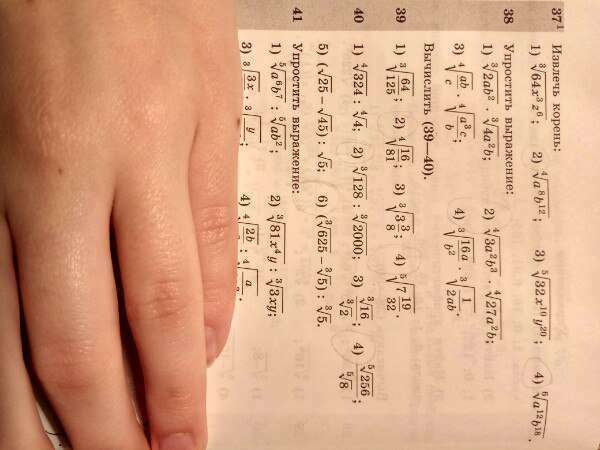 37¹ Извлечь корень:
1) ∛(64x³z⁶); 2) ∜(a⁸b¹²); 3) ⁵√(32x¹⁰y²⁰); 4) ⁶√(a¹²b¹⁸).
38 Упростить выражение:
1) ∛(2ab²) · ∛(4a²b); 2) ∜(3a²b³) · ∜(27a²b);
3) ∜(ab/c) · ∜(a³c/b); 4) ∛(16a/b²) · ∛(1/2ab).
Вычислить (39—40).
39 1) ∛(64/125); 2) ∜(16/81); 3) ∛(3 3/8); 4) ⁵√(7 19/32).
40 1) ∜324 : ∜4; 2) ∛128 : ∛2000; 3) ∛16/∛2; 4) ⁵√256/⁵√8;
5) (√25 − √45) : √5; 6) (∛625 − ∛5) : ∛5.
41 Упростить выражение:
1) ⁵√(a⁶b⁷) : ⁵√(ab²); 2) ∛(81x⁴y) : ∛(3xy);
3) ∛(3x · ∛(y ; 4) ∜(2b : ∜(a